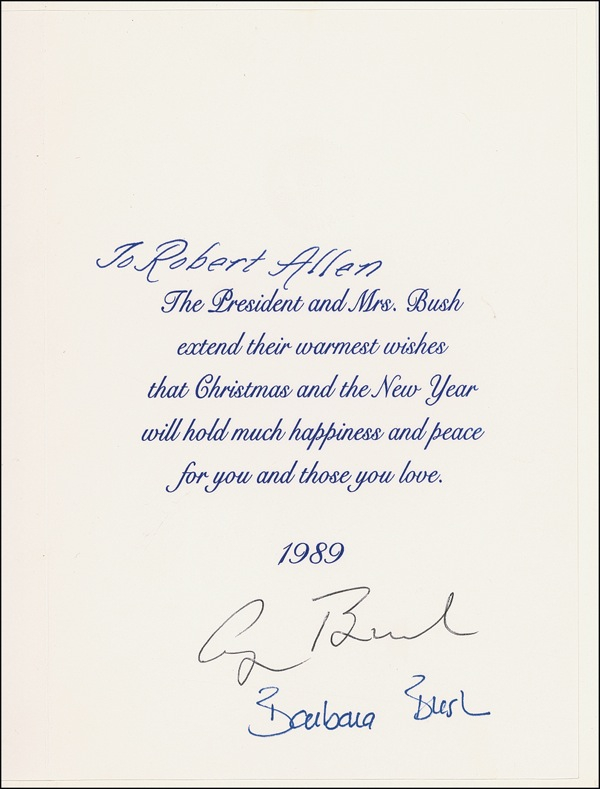 To Robert Allen
The President and Mrs. Bush
extend their warmest wishes
that Christmas and the New Year
will hold much happiness and peace
for you and those you love.
1989
G Bush
Barbara Bush